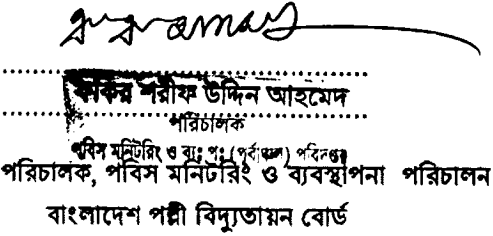 ফকির শরীফ উদ্দিন আহমেদ
পরিচালক
পবিস মনিটরিং ও ব্যঃ পঃ (পূর্বাঞ্চল) পরিদপ্তর
পরিচালক, পবিস মনিটরিং ও ব্যবস্থাপনা পরিচালন
বাংলাদেশ পল্লী বিদ্যুতায়ন বোর্ড